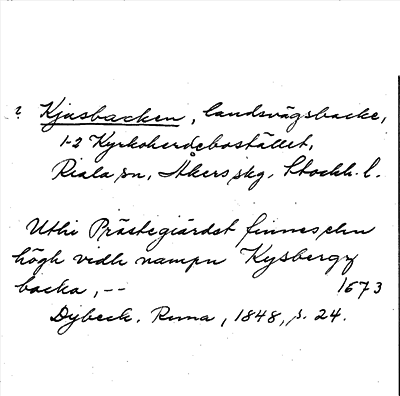 ? Kjusbacken, landsvägsbacke,
1-2 Kyrkoherdebostället,
Riala sn, Åkers skg, Stockh. l.
Uthi Prästegiärdet finnes ehn
högh vidh nampn Kysbergz
backa, -- 1673
Dybeck. Runa, 1848, s. 24.